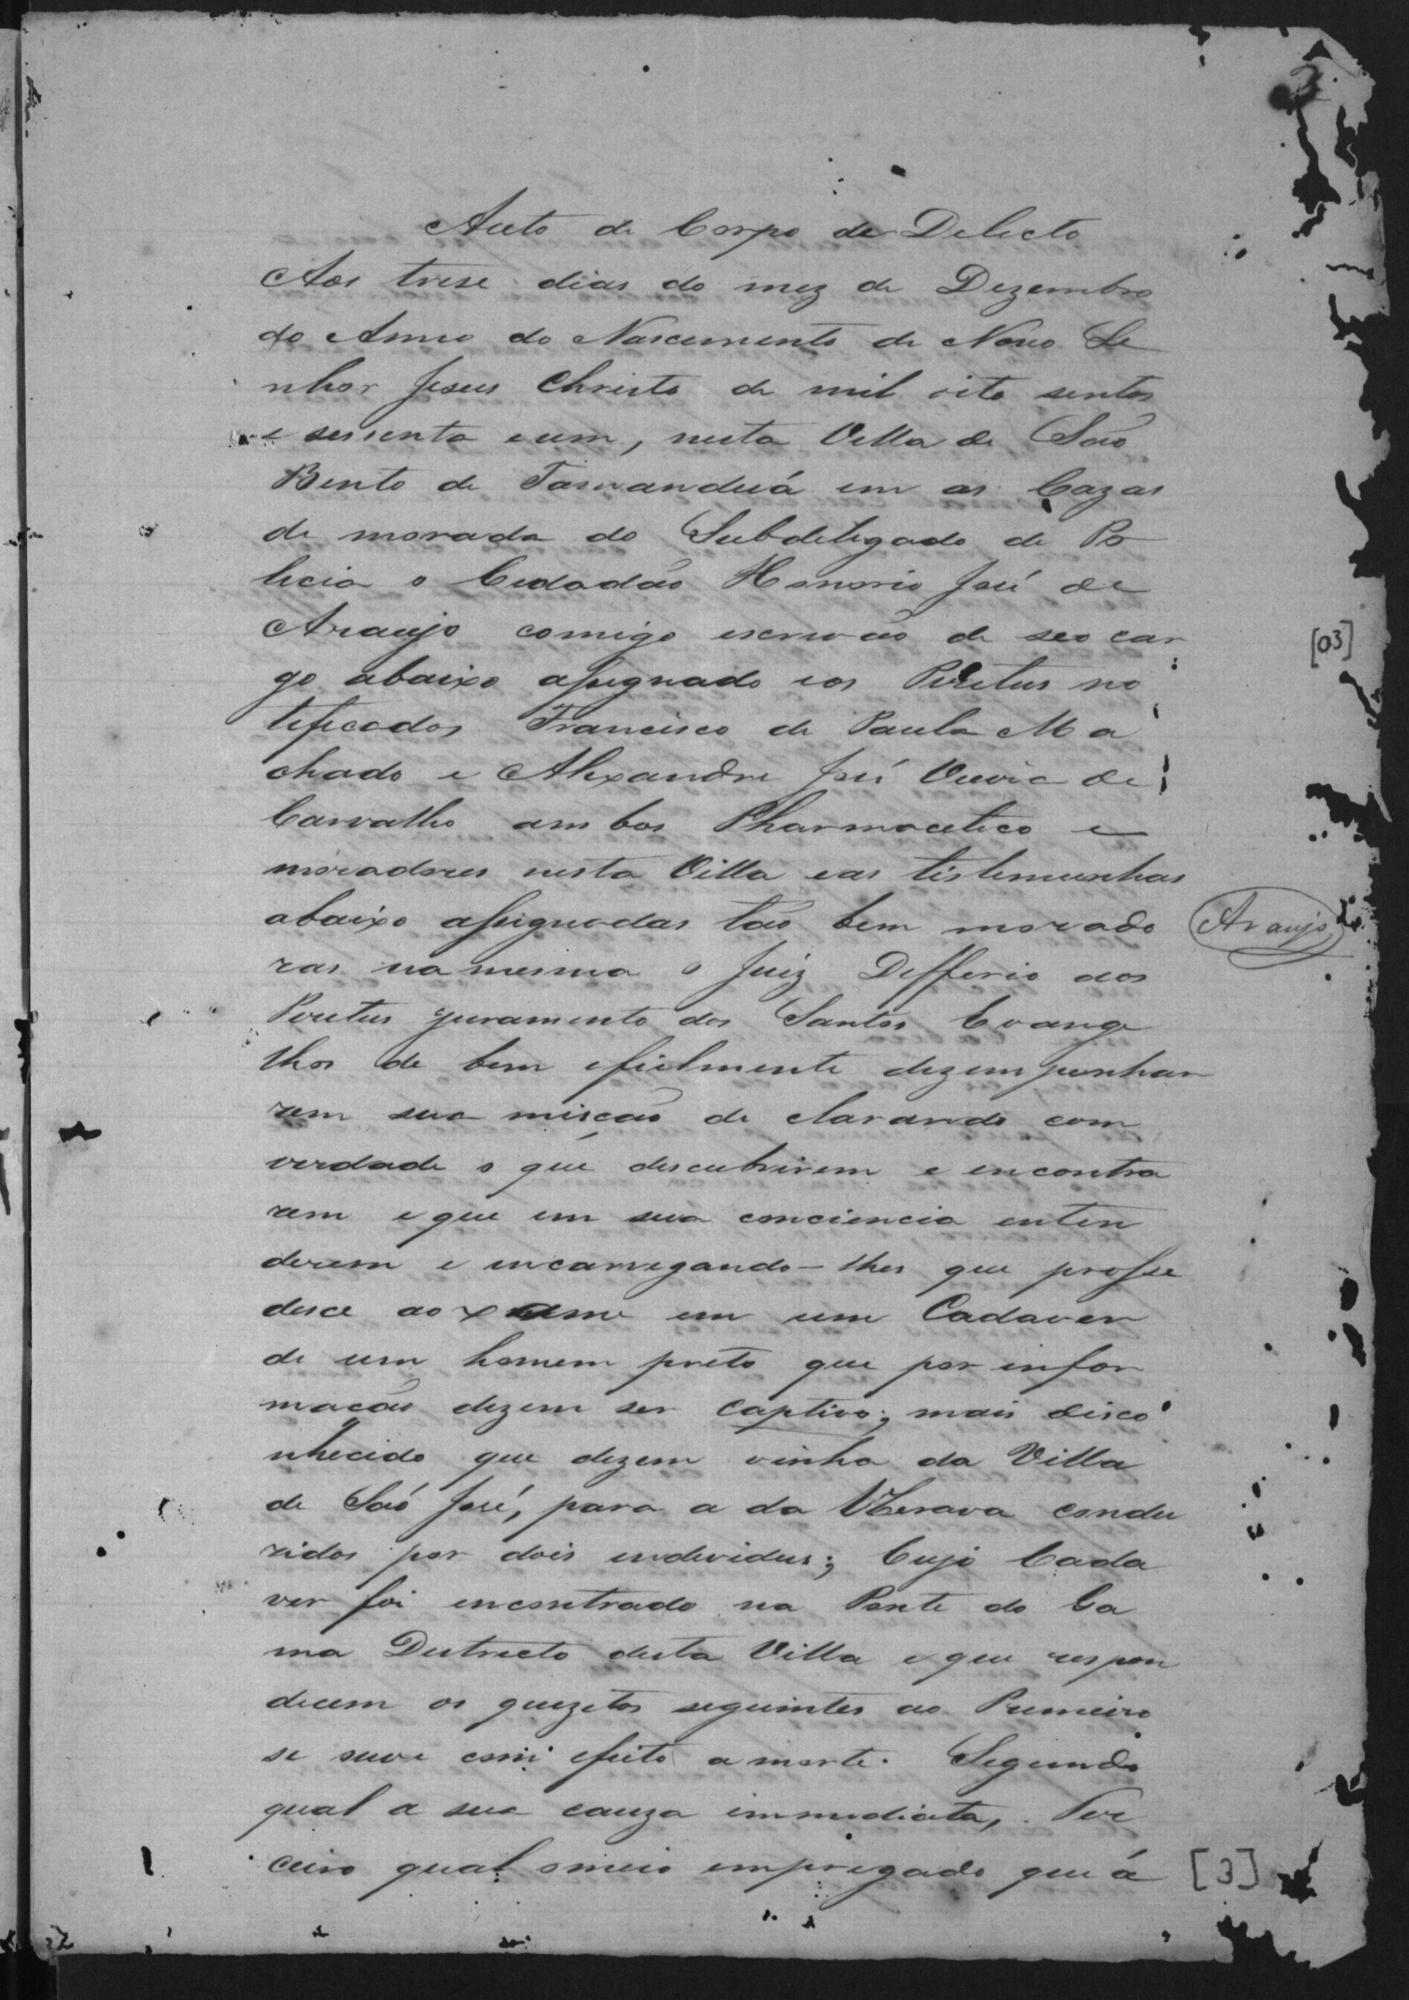 2
Auto de Corpo de Delicto
Aos trese dias do mez de Dezembro
do Anno do Nascimento de Nosso Se
nhor Jesus Christo de mil oito sentos
e sessenta e um, nesta Villa de São
Bento de Tamanduá em as Cazas
de morada do Subdelegado de Po
licia o Cidadão Honorio José de
Araujo comigo escrivão de seo car
go abaixo assignado e os Peritus no
tificados Francisco de Paula Ma
chado e Alexandre José de
Carvalho am bos Pharmacetico e
moradores nesta Villa e as tistemunhas
abaixo assignadas tão bem morado
ras na mesma o Juiz Defferio aos
Peritus juramento dos Santos Evange
lhos de bem e fielmente dezem penhar
rem sua misção de clarando com
verdade o que descubrirem e encontra
rem e que em sua conciencia enten
derem e encarregando-lhes que prosse
desce ao xame em um Cadaver
de um homem preto que por infor
mação dizem ser captivo; mais disco
nhecido que dizem vinha da Villa
de São José, para a da Uberava condu
zidos por dois individus; Cujo Cada
ver foi encontrado na Ponte do Ga
ma Destricto desta Villa e que respon
decem os quezitos seguintes ao Primeiro
se ouve com efeito a morte. Segundo
qual a sua cauza immediata, Ter
ceiro qual o meio empregado que á
[03]
Araujo
[3]